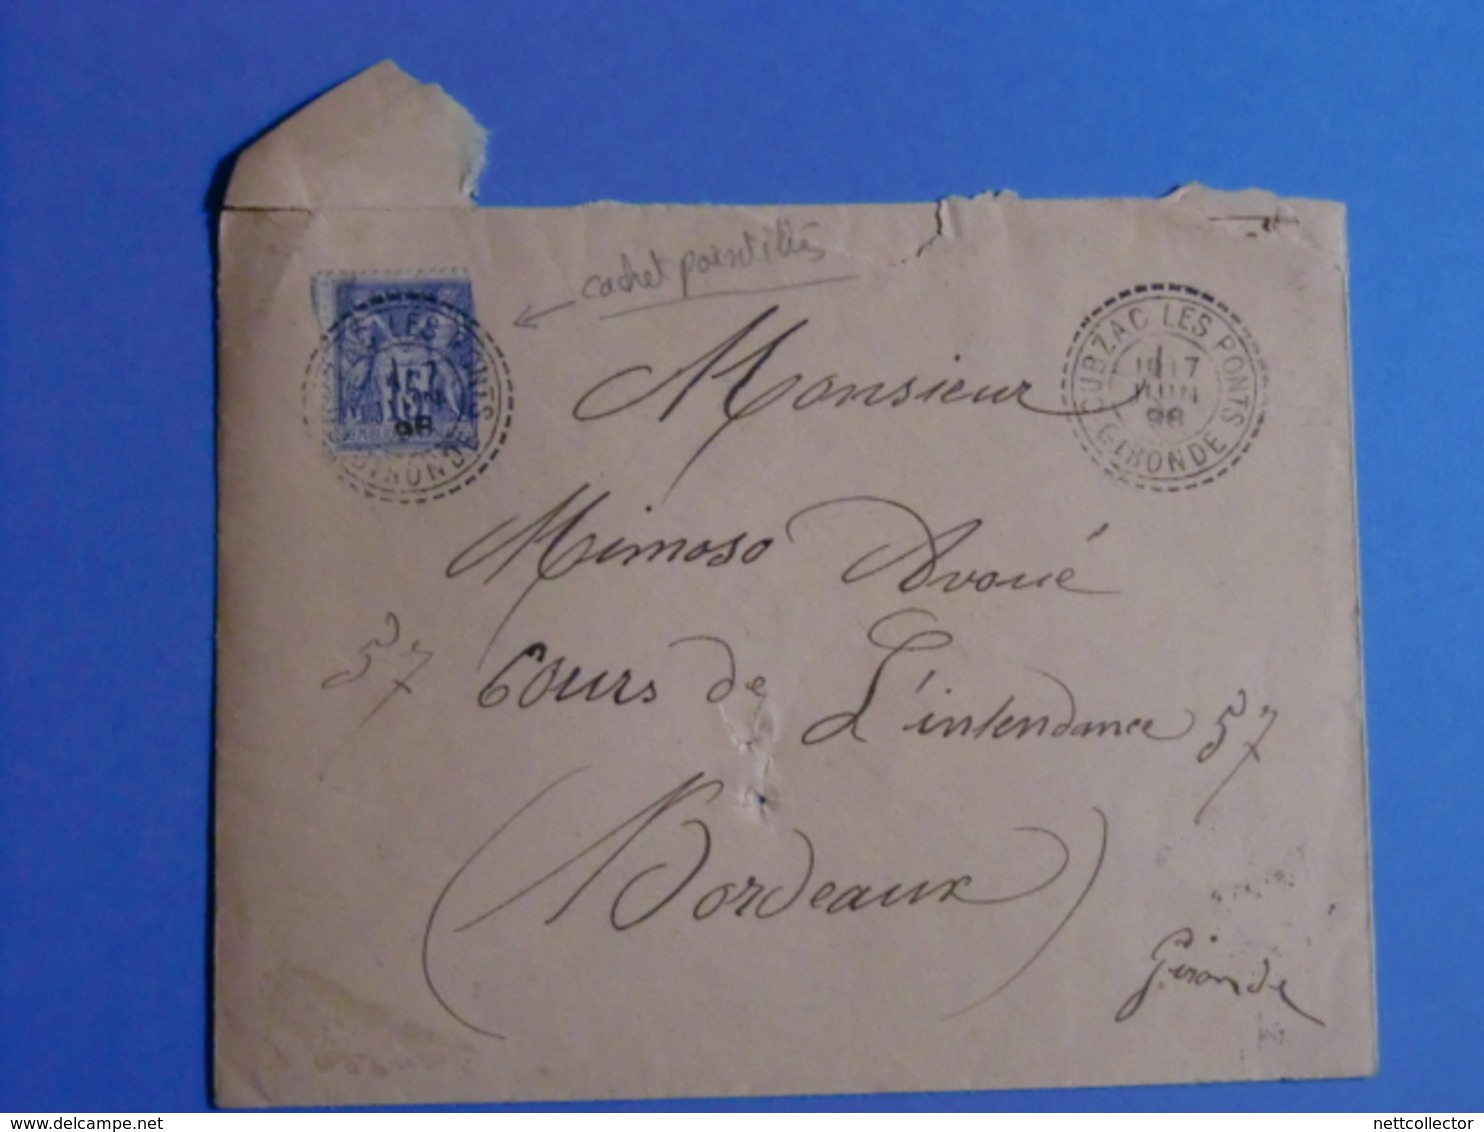 cachet pointillés
CUBZAC LES PONTS
17
JUIN
98
GIRONDE
LES PONTS
15
98
GIRONDE
Monsieur
Mimoso Avoué
57 Cours de L'intendance 57
(Bordeaux)
Gironde
www.delcampe.net
nettcollector